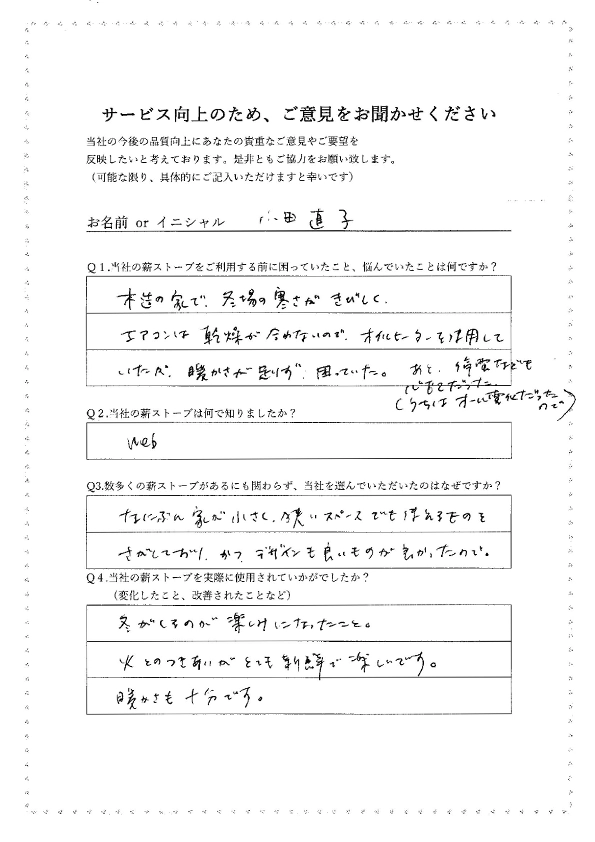 サービス向上のため、ご意見をお聞かせください
当社の今後の品質向上にあなたの貴重なご意見やご要望を
反映したいと考えております。是非ともご協力をお願い致します。
（可能な限り、具体的にご記入いただけますと幸いです）
お名前 or イニシャル 小田 直子
Q1.当社の薪ストーブをご利用する前に困っていたこと、悩んでいたことは何ですか？
木造の家で、冬場の寒さがきびしく、
エアコンは乾燥が合わないので、オイルヒーターを使用して
いたが、暖かさが足りず、困っていた。あと、停電なども
心もとなかった
（うちはオール電化だった
ので）
Q2.当社の薪ストーブは何で知りましたか？
web
Q3.数多くの薪ストーブがあるにも関わらず、当社を選んでいただいたのはなぜですか？
なにぶん家が小さく、狭いスペースでも使えるものを
さがしており、かつ、デザインも良いものが良かったので。
Q4.当社の薪ストーブを実際に使用されていかがでしたか？
（変化したこと、改善されたことなど）
冬がくるのが楽しみになったこと。
火とのつきあいがとても新鮮で楽しいです。
暖かさも十分です。